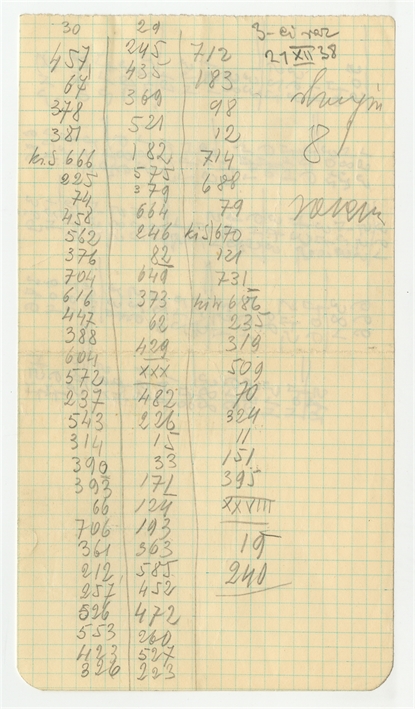 30
457
67
378
381
kiš 666
225
74
458
562
376
704
616
447
388
604
572
237
543
314
390
393
66
706
361
212
257
526
553
423
326
29
245
435
369
521
182
575
379
664
246
82
649
373
62
429
XXX
482
226
15
33
171
124
193
363
585
452
472
260
527
223
712
183
98
12
714
688
79
kiš 670
121
731
686
235
319
509
70
324
11
151
395
XXVIII
19
240
3-
21 XII 38
8